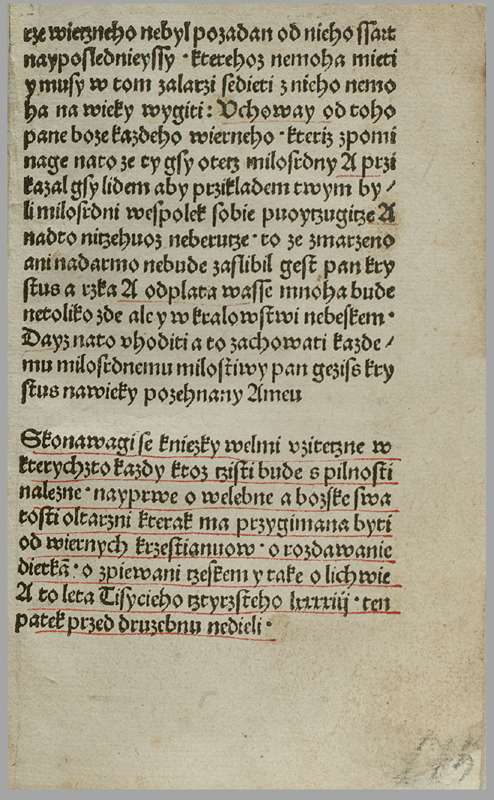 rze wieczneho nebyl pozadan od nieho ssart
nayposlednieyssy · kterehoz nemoha mieti
y musy w tom zalarzi sedieti z nieho nemo
ha na wieky wygiti : Vchoway od toho
pane boze kazdeho wierneho · kteriz zpomi
nage na to ze ty gsy otetz milosrdny A przi
kazal gsy lidem aby przikladem twym by /
li milosrdni wespolek sobie puoytzugitze A
nadto nitzehuoz neberutze · to ze zmarzeno
ani nadarmo nebude zaslibil gest pan kry
stus a rzka A odplata wasse mnoha bude
netoliko zde ale y w kralowstwi nebeskem ·
Dayz nato vhoditi a to zachowati kazde /
mu milosrdnemu milostiwy pan geziss kry
stus nawieky pozehnany Ameu
Skonawagi se kniezky welmi vzitetzne w
kterychzto kazdy ktoz tzisti bude s pilnosti
nalezne · nayprwe o welebne a bozske swa
tosti oltarzni kterak ma przygimana byti
od wiernych krzestianuow · o rozdawanie
dietkã · o zpiewani tzeskem y take o lichwie
A to leta Tisycieho tztyrzsteho lxxxxiij · ten
patek przed druzebnu nedieli ·